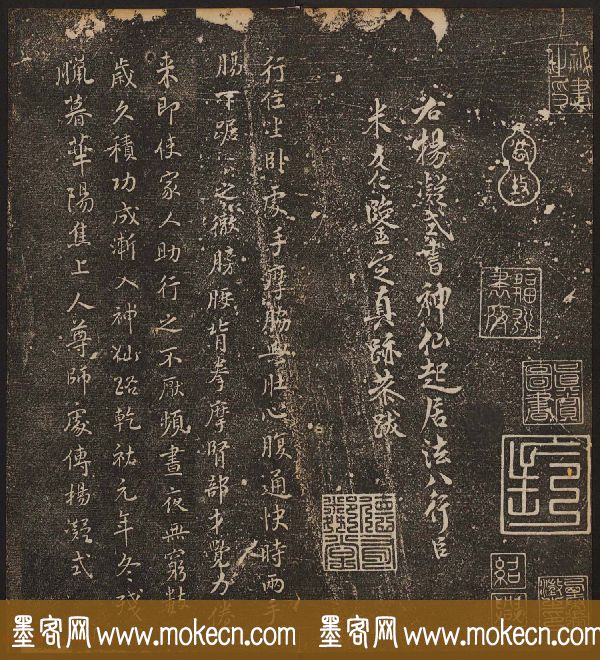 右楊凝式書神仙起居法八行臣
米友仁鑒定真跡恭跋
行住坐卧處手摩脇與肚心腹通快時兩手
腸下踞之徹膀腰背拳摩腎部才覺力倦
来即使家人助行之不厭頻晝夜無窮數
歲久積功成漸入神仙路乾祐元年冬殘
臘暮華陽焦上人尊師處傳楊凝式
紹
墨客网 www.mokecn.com 墨客网 www.mokecn.com